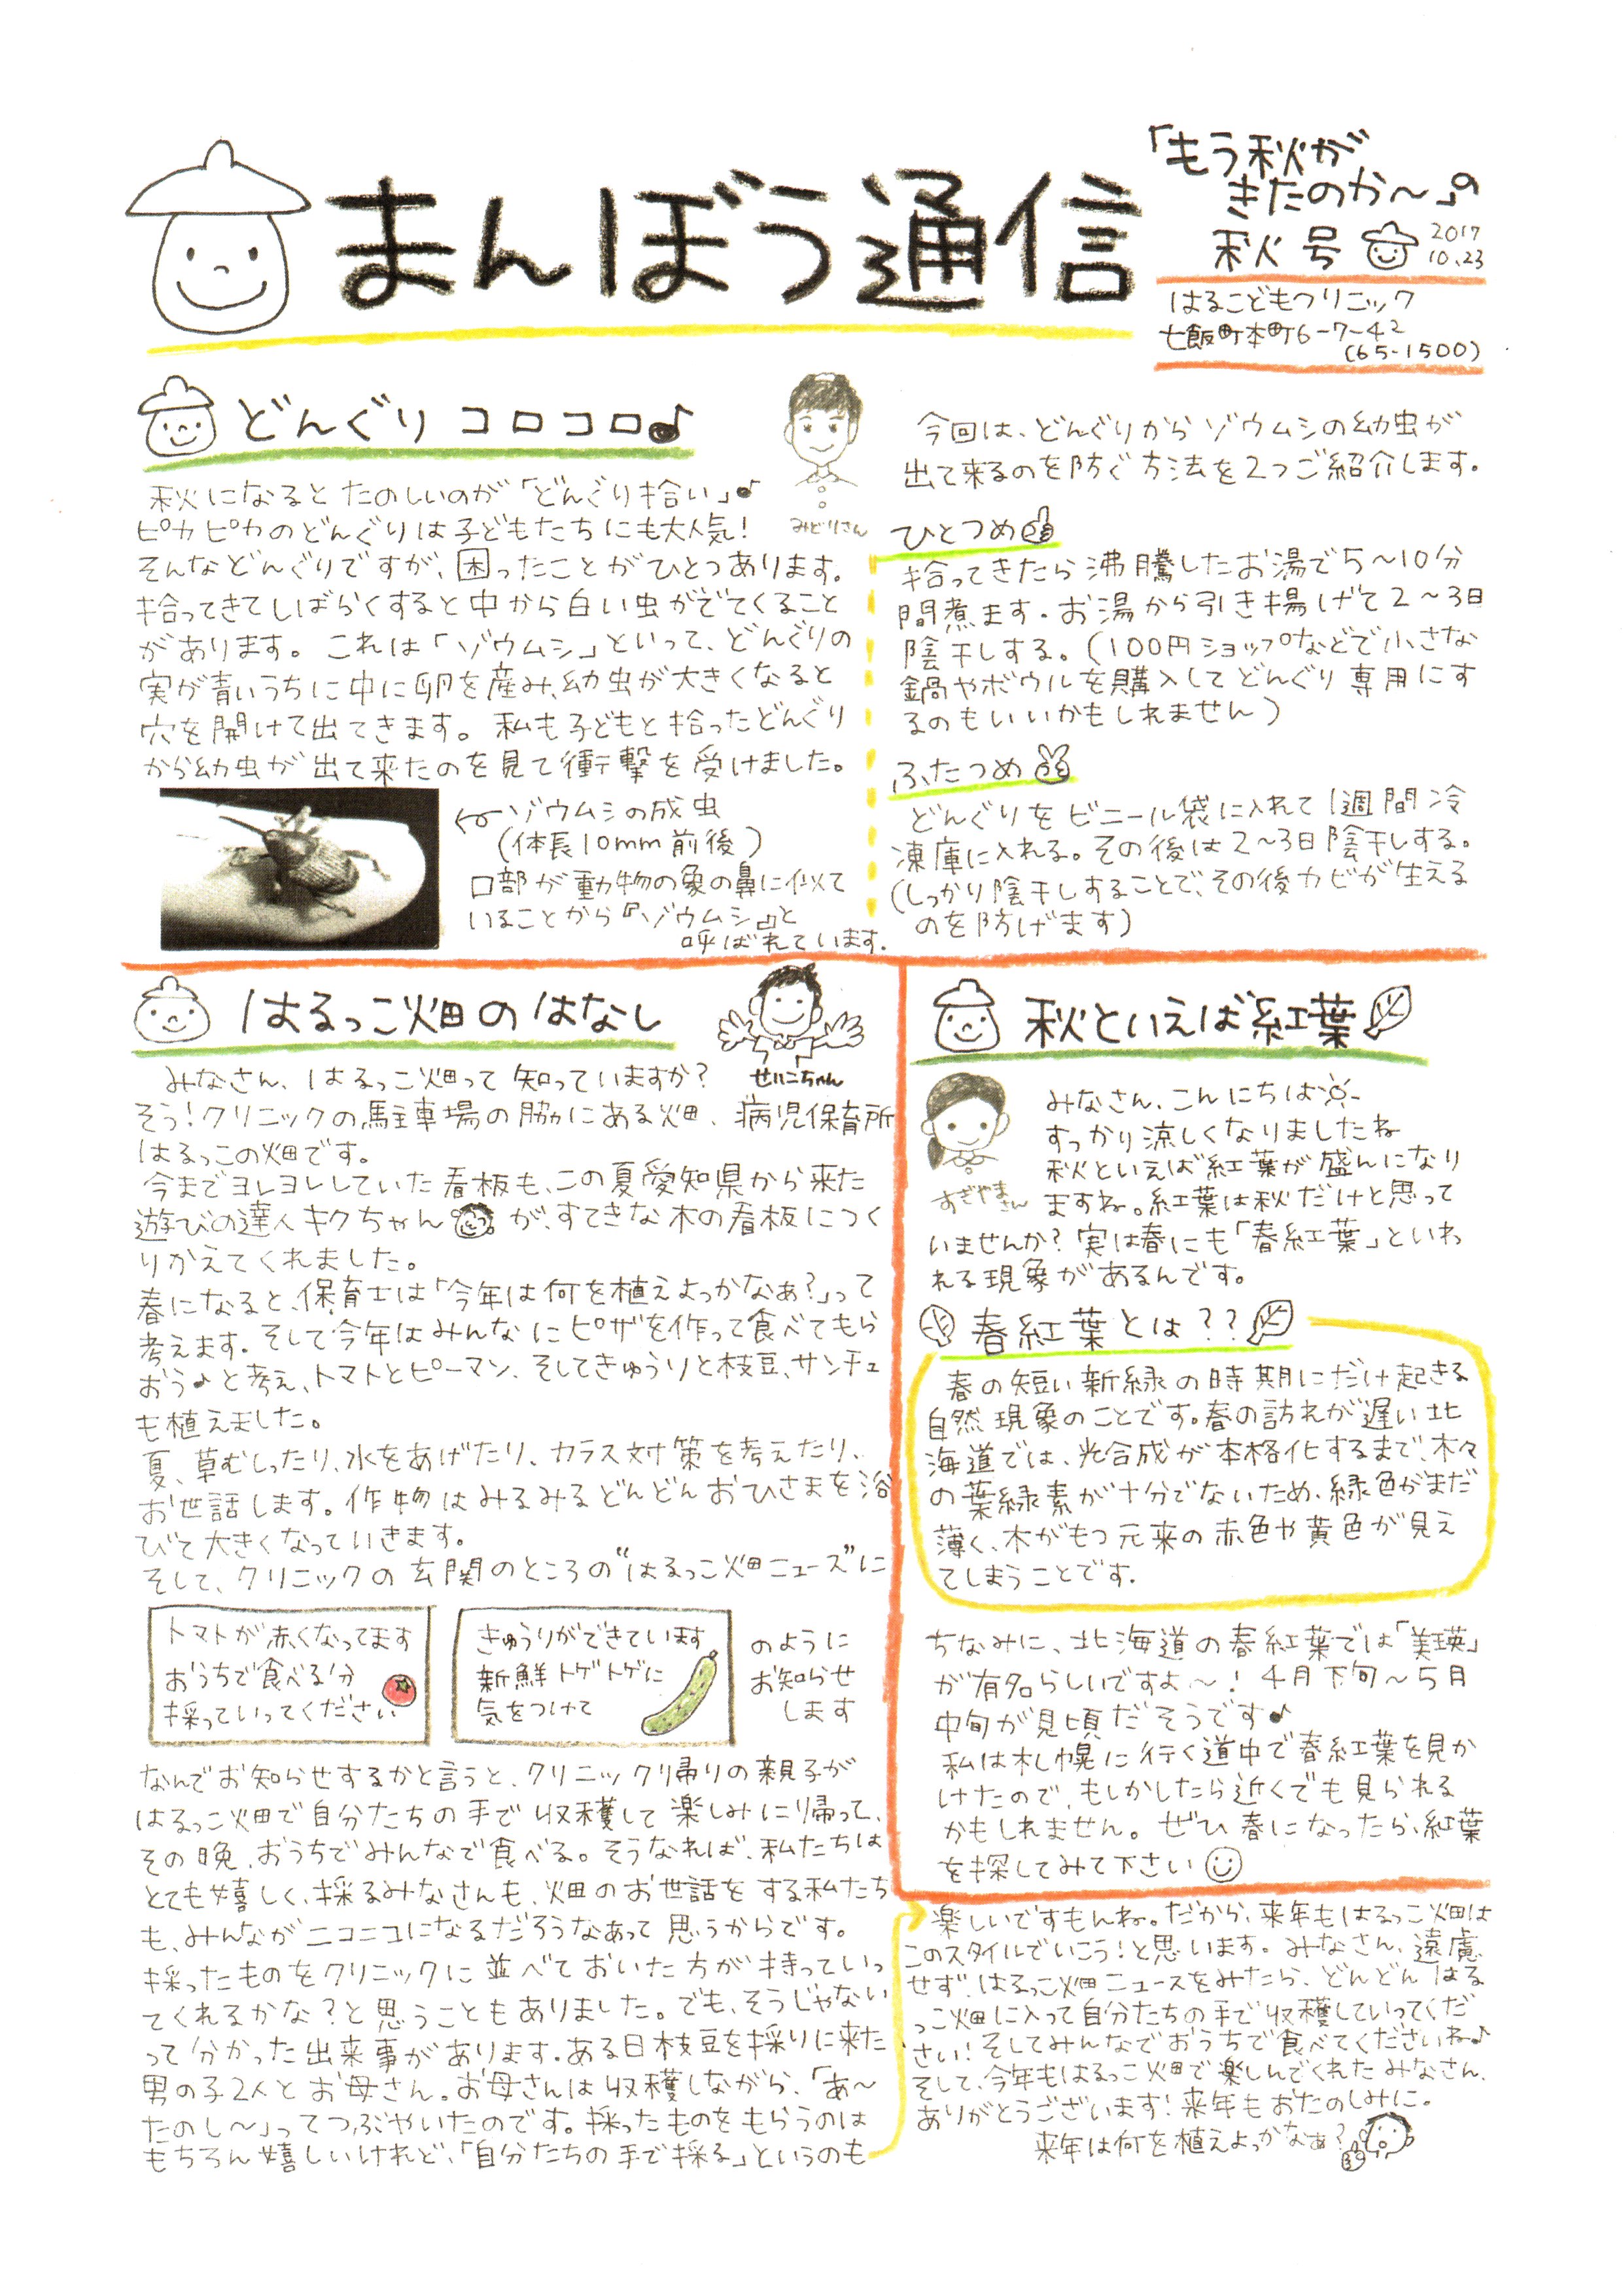 まんぼう通信
「もう秋が
きたのか〜」の
秋号
2017
10.23
はるこどもクリニック
七飯町本町6-7-42
(65-1500)
どんぐり コロコロ♪
みどりさん
秋になると たのしいのが「どんぐり拾い」♪
ピカピカのどんぐりは子どもたちにも大人気!
そんなどんぐりですが、困ったことがひとつあります。
拾ってきてしばらくすると中から白い虫がでてくること
があります。これは「ゾウムシ」といって、どんぐりの
実が青いうちに中に卵を産み、幼虫が大きくなると
穴を開けて出てきます。私も子どもと拾ったどんぐり
から幼虫が出て来たのを見て衝撃を受けました。
ゾウムシの成虫
(体長10mm前後)
口部が動物の象の鼻に似て
いることから『ゾウムシ』と
呼ばれています。
今回は、どんぐりからゾウムシの幼虫が
出て来るのを防ぐ方法を2つご紹介します。
ひとつめ
拾ってきたら沸騰したお湯で5〜10分
間煮ます。お湯から引き揚げて2〜3日
陰干しする。(100円ショップなどで小さな
鍋やボウルを購入してどんぐり専用にす
るのもいいかもしれません)
ふたつめ
どんぐりをビニール袋に入れて1週間冷
凍庫に入れる。その後は2〜3日陰干しする。
(しっかり陰干しすることで、その後カビが生える
のを防げます)
はるっこ畑のはなし
せいこちゃん
みなさん、はるっこ畑って知っていますか?
そう!クリニックの駐車場の脇にある畑、病児保育所
はるっこの畑です。
今までヨレヨレしていた看板も、この夏愛知県から来た
遊びの達人キクちゃんが、すてきな木の看板につく
りかえてくれました。
春になると、保育士は「今年は何を植えよっかなぁ?」って
考えます。そして今年はみんなにピザを作って食べてもら
おう♪と考え、トマトとピーマン、そしてきゅうりと枝豆、サンチュ
も植えました。
夏、草むしったり、水をあげたり、カラス対策を考えたり、
お世話します。作物はみるみるどんどんおひさまを浴
びて大きくなっていきます。
そして、クリニックの玄関のところの"はるっこ畑ニュース"に
トマトが赤くなってます
おうちで食べる分
採っていってください
きゅうりができています
新鮮トゲトゲに
気をつけて
のように
お知らせ
します
なんでお知らせするかと言うと、クリニック帰りの親子が
はるっこ畑で自分たちの手で収穫して楽しみに帰って、
その晩、おうちでみんなで食べる。そうなれば、私たちは
とても嬉しく、採るみなさんも、畑のお世話をする私たち
も、みんながニコニコになるだろうなあって思うからです。
採ったものをクリニックに並べておいた方が持っていっ
てくれるかな?と思うこともありました。でも、そうじゃない
って分かった出来事があります。ある日枝豆を採りに来た
男の子2人とお母さん。お母さんは収穫しながら、「あ〜
たのし〜」ってつぶやいたのです。採ったものをもらうのは
もちろん嬉しいけれど、「自分たちの手で採る」というのも
秋といえば紅葉
すぎやまさん
みなさん、こんにちは
すっかり涼しくなりましたね
秋といえば紅葉が盛んになり
ますね。紅葉は秋だけと思って
いませんか?実は春にも「春紅葉」といわ
れる現象があるんです。
春紅葉とは??
春の短い新緑の時期にだけ起きる
自然現象のことです。春の訪れが遅い北
海道では、光合成が本格化するまで、木々
の葉緑素が十分でないため、緑色がまだ
薄く、木がもつ元来の赤色や黄色が見え
てしまうことです。
ちなみに、北海道の春紅葉では「美瑛」
が有名らしいですよ〜!4月下旬〜5月
中旬が見頃だそうです♪
私は札幌に行く道中で春紅葉を見か
けたので、もしかしたら近くでも見られる
かもしれません。ぜひ春になったら、紅葉
を探してみて下さい
楽しいですもんね。だから、来年もはるっこ畑は
このスタイルでいこう!と思います。みなさん、遠慮
せず、はるっこ畑ニュースをみたら、どんどんはる
っこ畑に入って自分たちの手で収穫していってくだ
さい!そしてみんなでおうちで食べてくださいね♪
そして、今年もはるっこ畑で楽しんでくれたみなさん、
ありがとうございます!来年もおたのしみに。
来年は何を植えよっかなぁ?